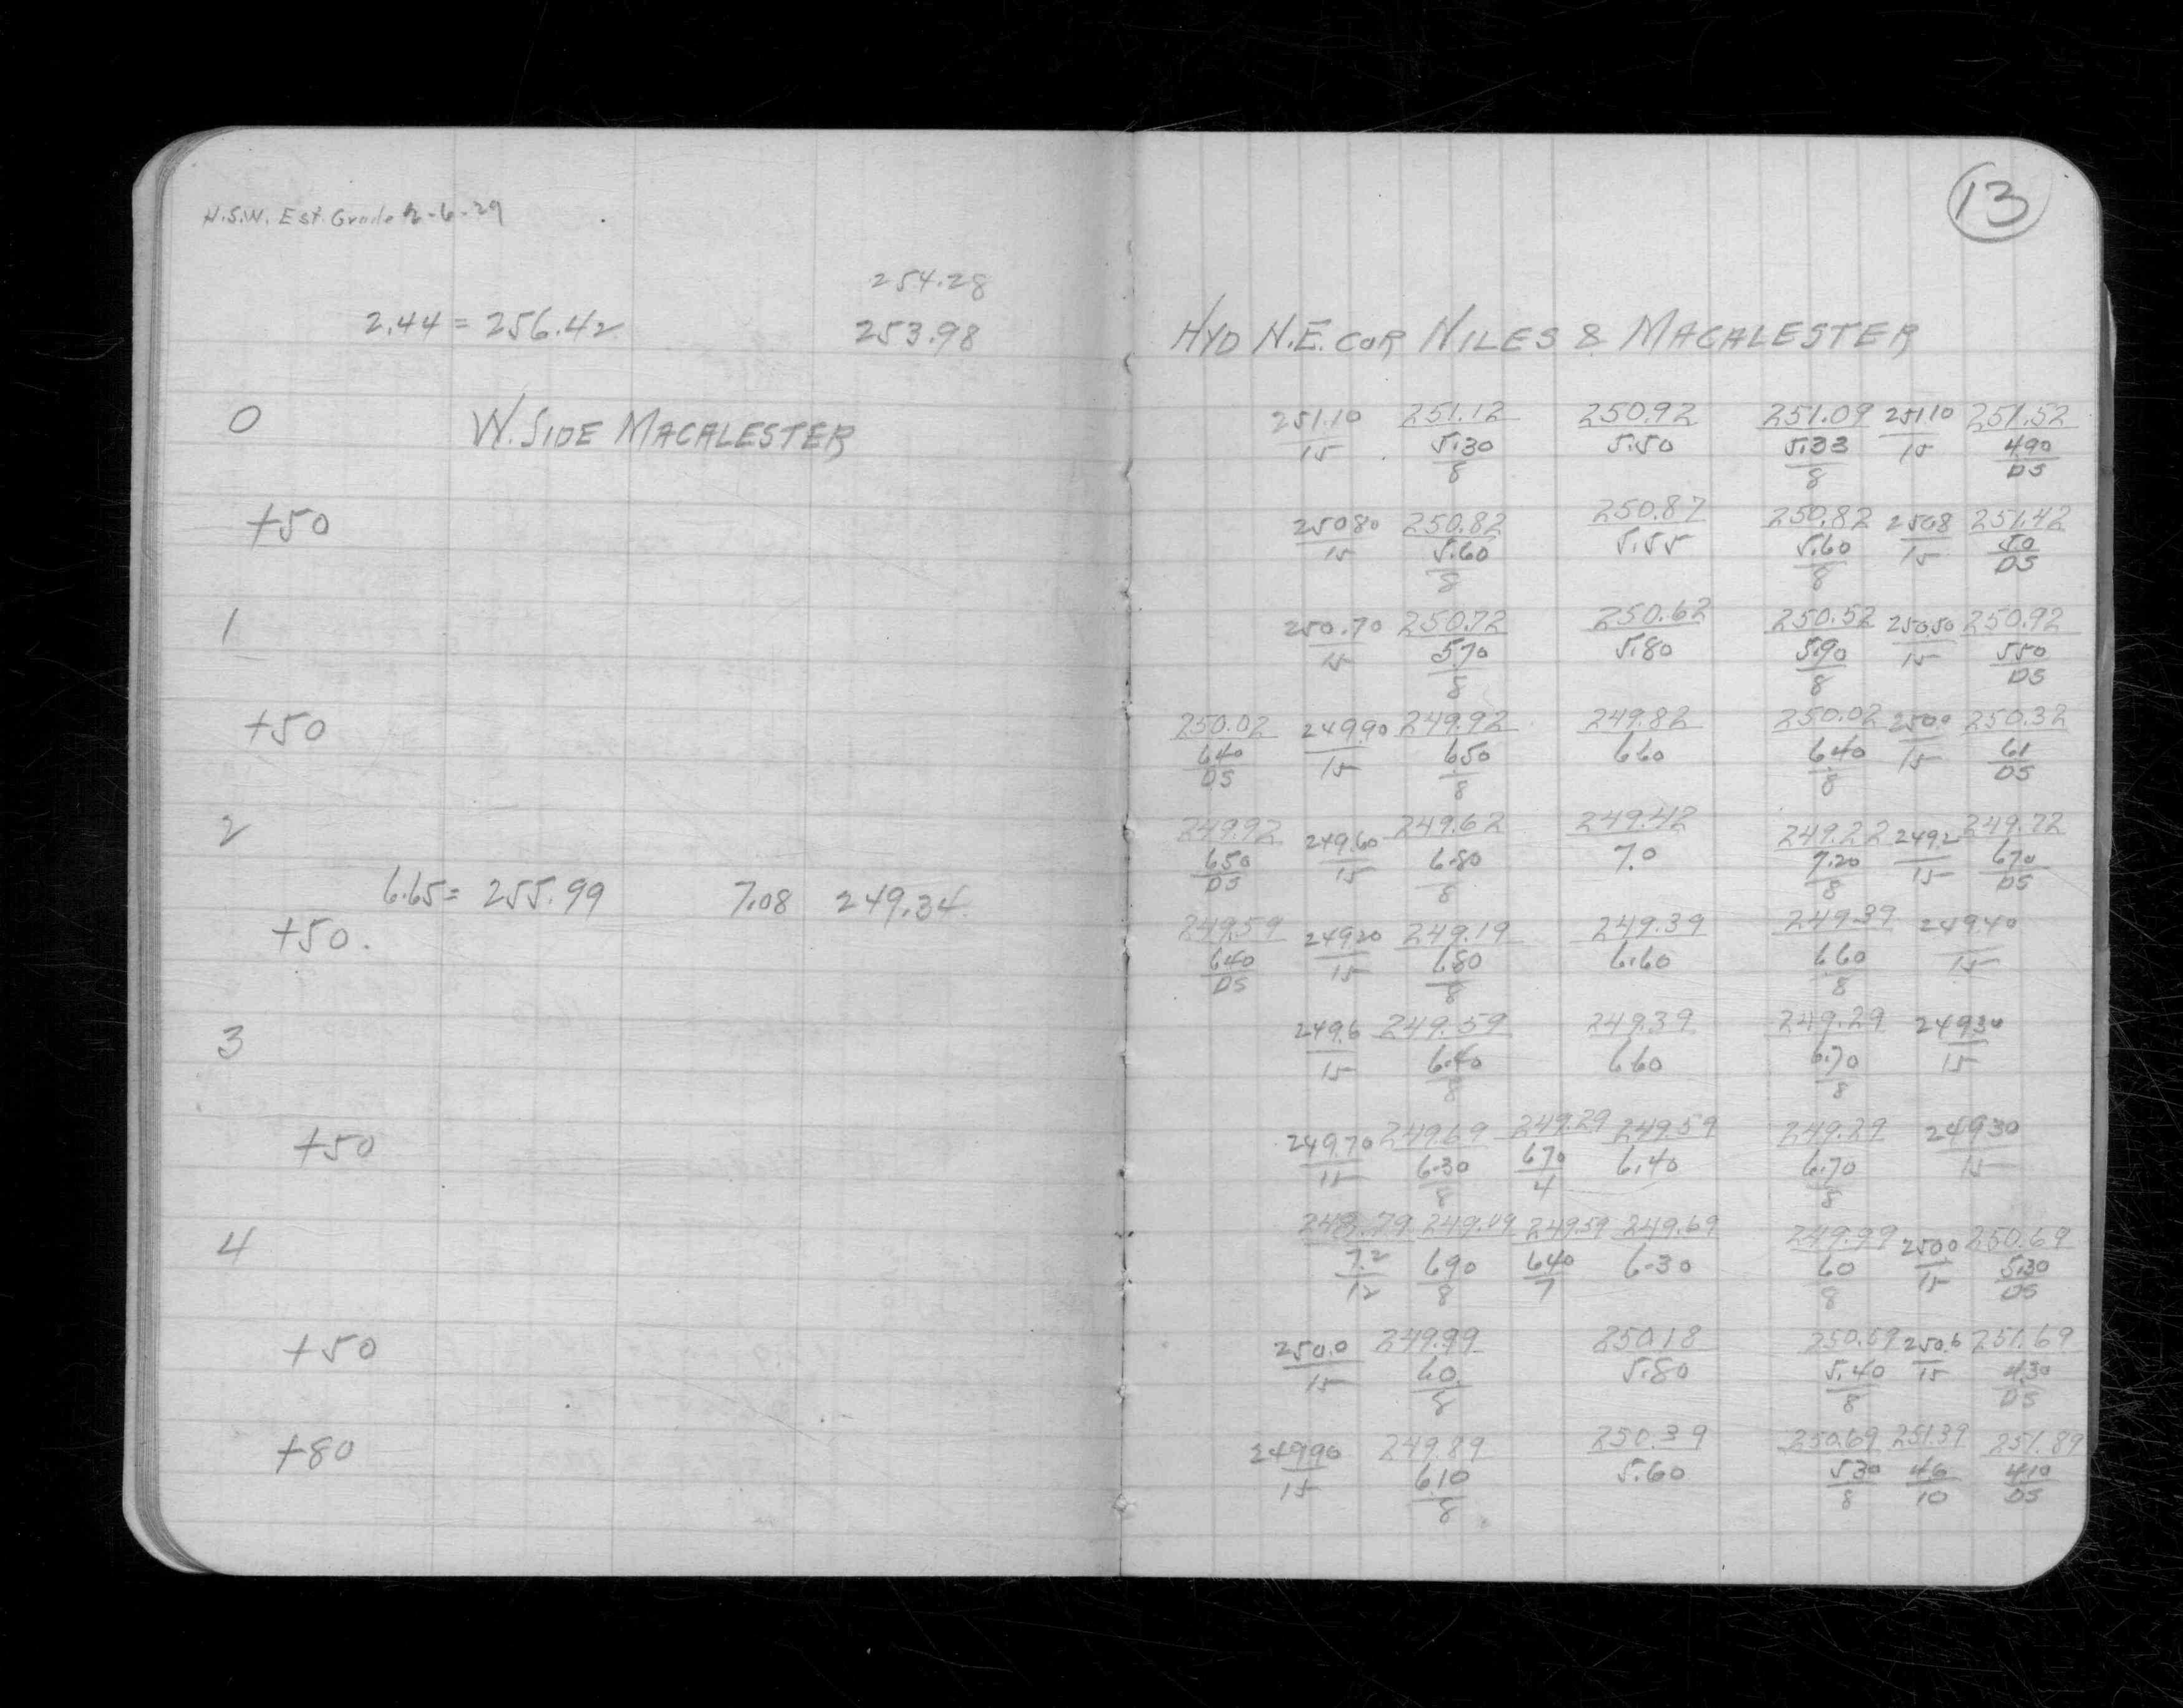 13
H.S.W. Est. Grade 2-6-29
254.28
2.44 = 256.42 253.98 HYD N.E. COR NILES & MACALESTER
0 W. SIDE MACALESTER 251.10 251.12 250.92 251.09 251.10 251.52
15 5.30 5.50 5.33 15 4.90
8 8 DS
+50 250.80 250.82 250.87 250.82 250.8 251.42
15 5.60 5.55 5.60 15 5.0
8 8 DS
1 250.70 250.72 250.62 250.52 250.50 250.92
15 5.70 5.80 5.90 15 5.50
8 8 DS
+50 250.02 249.90 249.92 249.82 250.02 250.0 250.32
6.40 15 6.50 6.60 6.40 15 6.1
DS 8 8 DS
2 249.92 249.60 249.62 249.42 249.22 249.2 249.72
6.50 15 6.80 7.0 7.20 15 6.70
DS 8 8 DS
6.65 = 255.99 7.08 249.34
+50. 249.59 249.20 249.19 249.39 249.39 249.40
6.40 15 6.80 6.60 6.60 15
DS 8 8
3 249.6 249.59 249.39 249.29 249.30
15 6.40 6.60 6.70 15
8 8
+50 249.70 249.69 249.29 249.59 249.29 249.30
15 6.30 6.70 6.40 6.70 15
8 4 8
4 248.79 249.09 249.59 249.69 249.99 250.0 250.69
7.2 6.90 6.40 6.30 6.0 15 5.30
12 8 7 8 DS
+50 250.0 249.99 250.18 250.59 250.6 251.69
15 6.0 5.80 5.40 15 4.30
8 8 DS
+80 249.90 249.89 250.39 250.69 251.39 251.89
15 6.10 5.60 5.30 4.6 4.10
8 8 10 DS